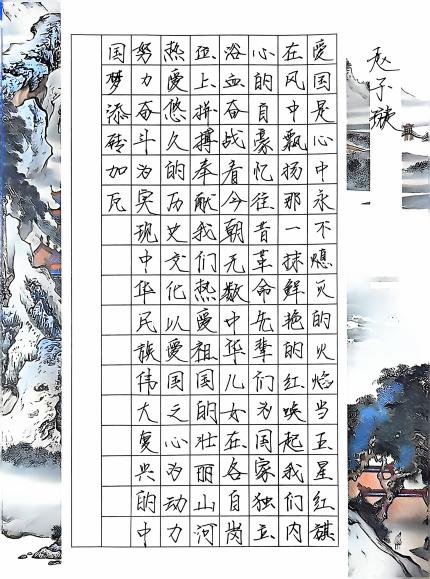 赵子
爱国是心中永不熄灭的火焰当五星红旗
在风中飘扬那一抹鲜艳的红唤起我们内
心的自豪忆往昔革命先辈们为国家独立
浴血奋战看今朝无数中华儿女在各自岗
位上拼搏奉献我们热爱祖国的壮丽山河
热爱悠久的历史文化以爱国之心为动力
努力奋斗为实现中华民族伟大复兴的中
国梦添砖加瓦